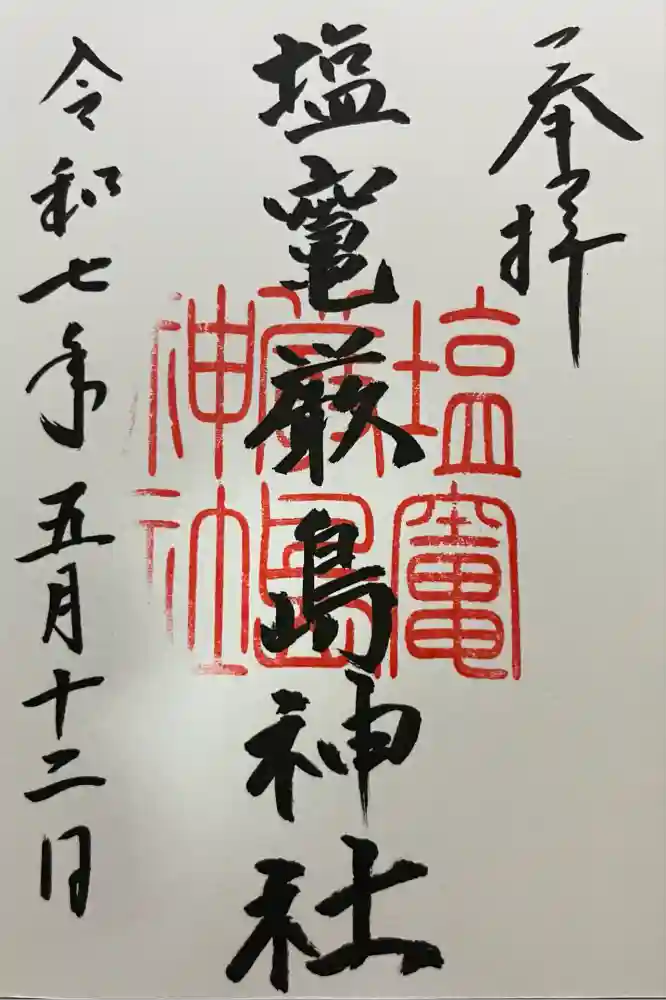 奉拝
塩竃厳島神社
塩竃
厳島
神社
令和七年五月十二日